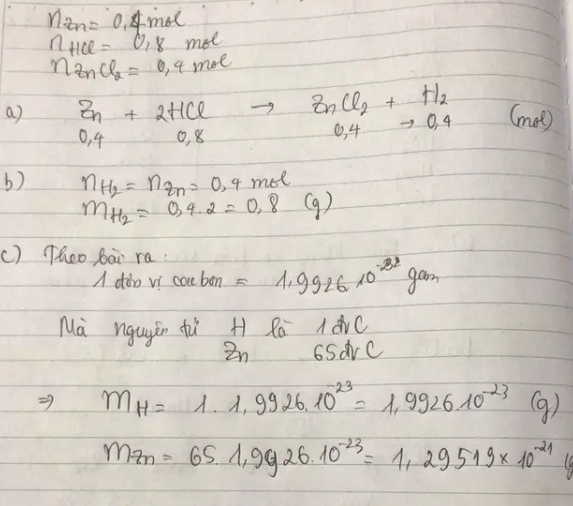 nZn = 0,4 mol
nHCl = 0,8 mol
nZnCl₂ = 0,4 mol
a) Zn + 2HCl → ZnCl₂ + H₂ (mol)
0,4 0,8 0,4 → 0,4
b) nH₂ = nZn = 0,4 mol
mH₂ = 0,4.2 = 0,8 (g)
c) Theo bài ra:
1 đơn vị cacbon = 1,9926.10⁻²³ gam
Mà nguyên tử H là 1đvC
Zn 65đvC
⇒ mH = 1. 1,9926.10⁻²³ = 1,9926.10⁻²³ (g)
mZn = 65. 1,9926.10⁻²³ = 1,29519×10⁻²¹ (g